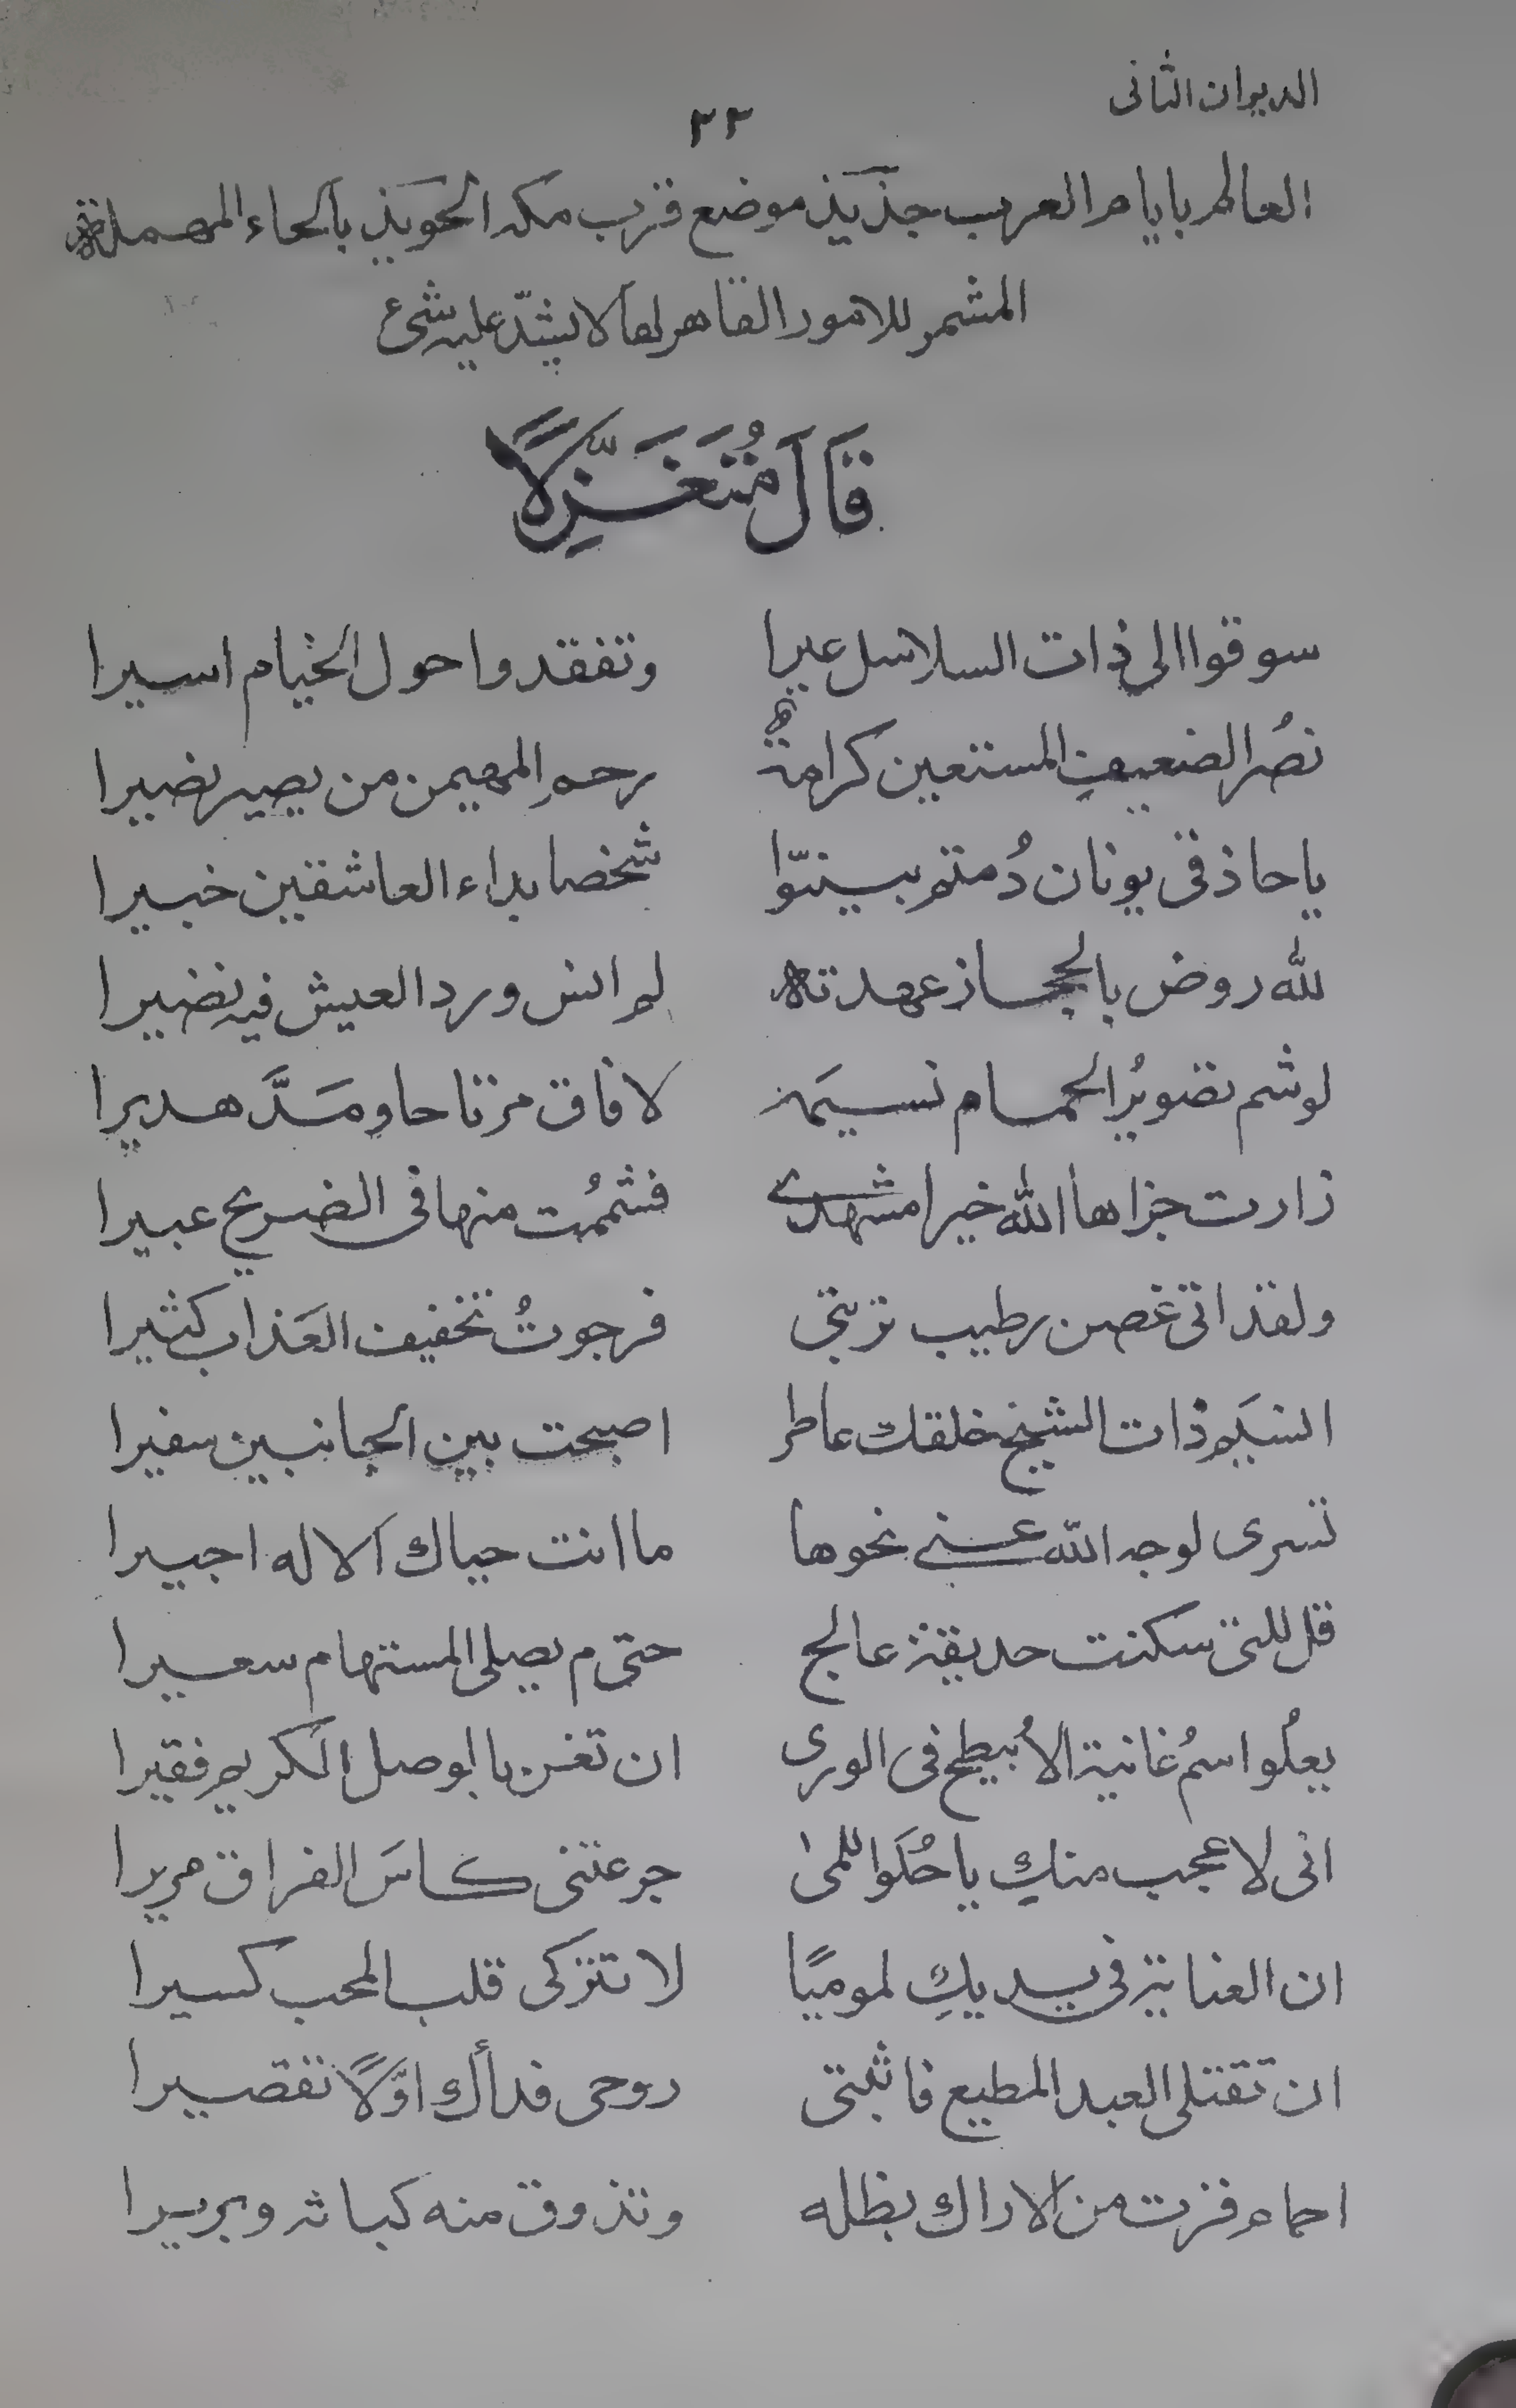 الديوان الثانى
٣٣
العالم بايام العرب جذيذ موضع قرب مكه الحويذ بالحاء المهملة
المشمر للامور القاهر لها لا يشذّ عليه شئ
قَالَ مُتَغَزِّلًا
سوقوا الى ذات السلاسل عيرا وتفقدوا حول الخيام اسيرا
نصُر الضعيفِ المستعين كرامةٌ رحم المهيمن من يصير نصيرا
يا حاذقى يونان دُمتم بينّوا شخصا بداء العاشقين خبيرا
لله روض بالحجاز عهدته لم انس ورد العيش فيه نضيرا
لو شم تصويرُ الحمام نسيمَه لافاق مرتاحا ومَدَّ هديرا
زارت جزاها الله خيرا مشهدى فشممُت منها فى الضريح عبيرا
ولقد اتى غصن رطيب تربتى فرجوتُ تخفيف العَذاب كثيرا
انسَيم ذات الشيخ خلقك عاطر اصبحت بين الجانبين سفيرا
تسرى لوجه الله عنى نحوها ما انت حياك الاله اجيرا
قل للتى سكنت حديقة عالج حتى م يصلى المستهام سعيرا
يعلُوا اسمُ غانية الاُبيطح فى الورى ان تغن بالوصل الكريم فقيرا
انى لا عجب منكِ يا حُلَو اللمى جرعتنى كاسَ الفراق مريرا
ان العناية فى يديكِ لموميًا لا تتركى قلب المحب كسيرا
ان تقتلى العبد المطيع فاثبتى روحى فدأك اوّلًا تقصيرا
احمام فزت من الاراك بظله وتذوق منه كباثه وبريرا